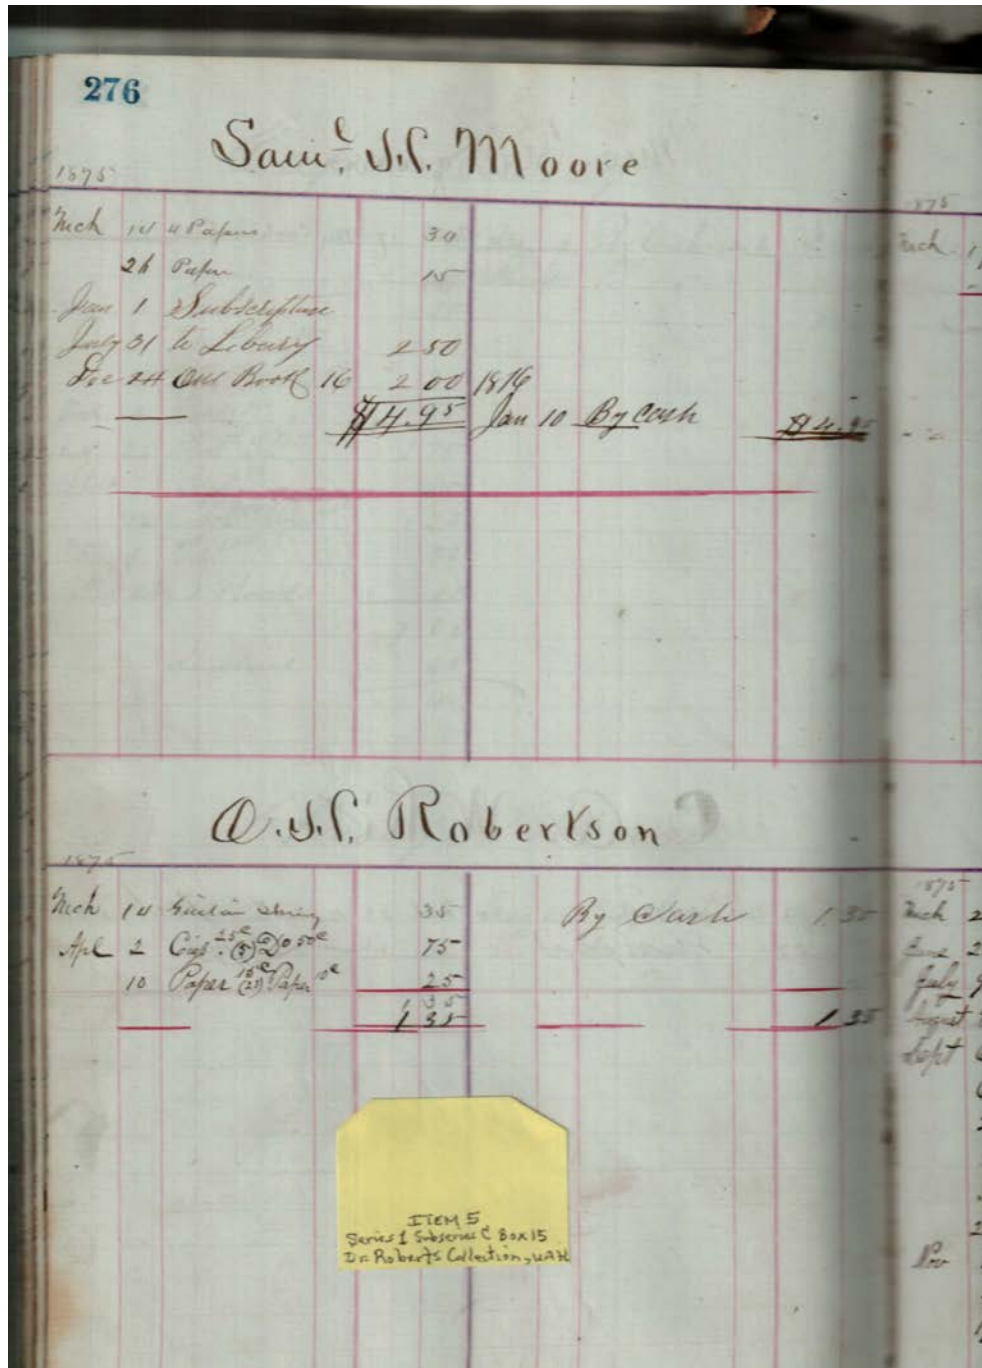 276
Saml. J.C. Moore
1875
Mch 14 4 Papers 30
26 Paper 15
Jan 1 Subscription
July 31 to Libary 2 50
Dec 24 One Book 16 2 00 1876
$4.95 Jan 10 By Cash $4.95
O.J.C. Robertson
1875
Mch 14 Guitar String 35 By Cash 1 35
Apl 2 Cigs 25c (5) 50c 75
10 Paper 15c (25) Paper 10c 25
1 35
1 35 1 35
1875
Mch
1875
Mch 2
June 2
July 9
August
Sept
Nov
ITEM 5
Series 1 Subseries C Box 15
Dr. Roberts Collection, UAH